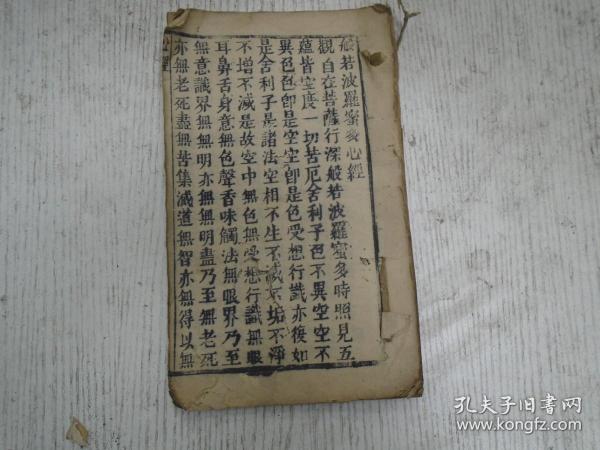 般若波羅蜜多心經
觀自在菩薩行深般若波羅蜜多時照見五
蘊皆空度一切苦厄舍利子色不異空空不
異色色即是空空即是色受想行識亦復如
是舍利子是諸法空相不生不滅不垢不淨
不增不減是故空中無色無受想行識無眼
耳鼻舌身意無色聲香味觸法無眼界乃至
無意識界無無明亦無無明盡乃至無老死
亦無老死盡無苦集滅道無智亦無得以無
孔夫子旧书网
www.kongfz.com